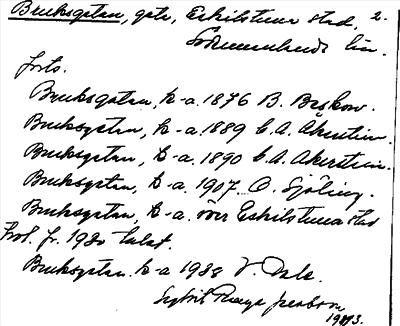 Bruksgatan, gata, Eskilstuna stad. 2.
Södermanlands län.
forts.
Bruksgatan, k-a. 1876 B. Beskow.
Bruksgatan, k-a. 1889 C. A. Åkerstein.
Bruksgatan, k-a. 1890 C. A. Åkerstein.
Bruksgatan, k-a. 1907. O. Sjöling.
Bruksgatan, k-a. över Eskilstuna stad
fr. 1920 talet.
Bruksgatan. k-a 1938 V. Dala.
Sigbrit Persson